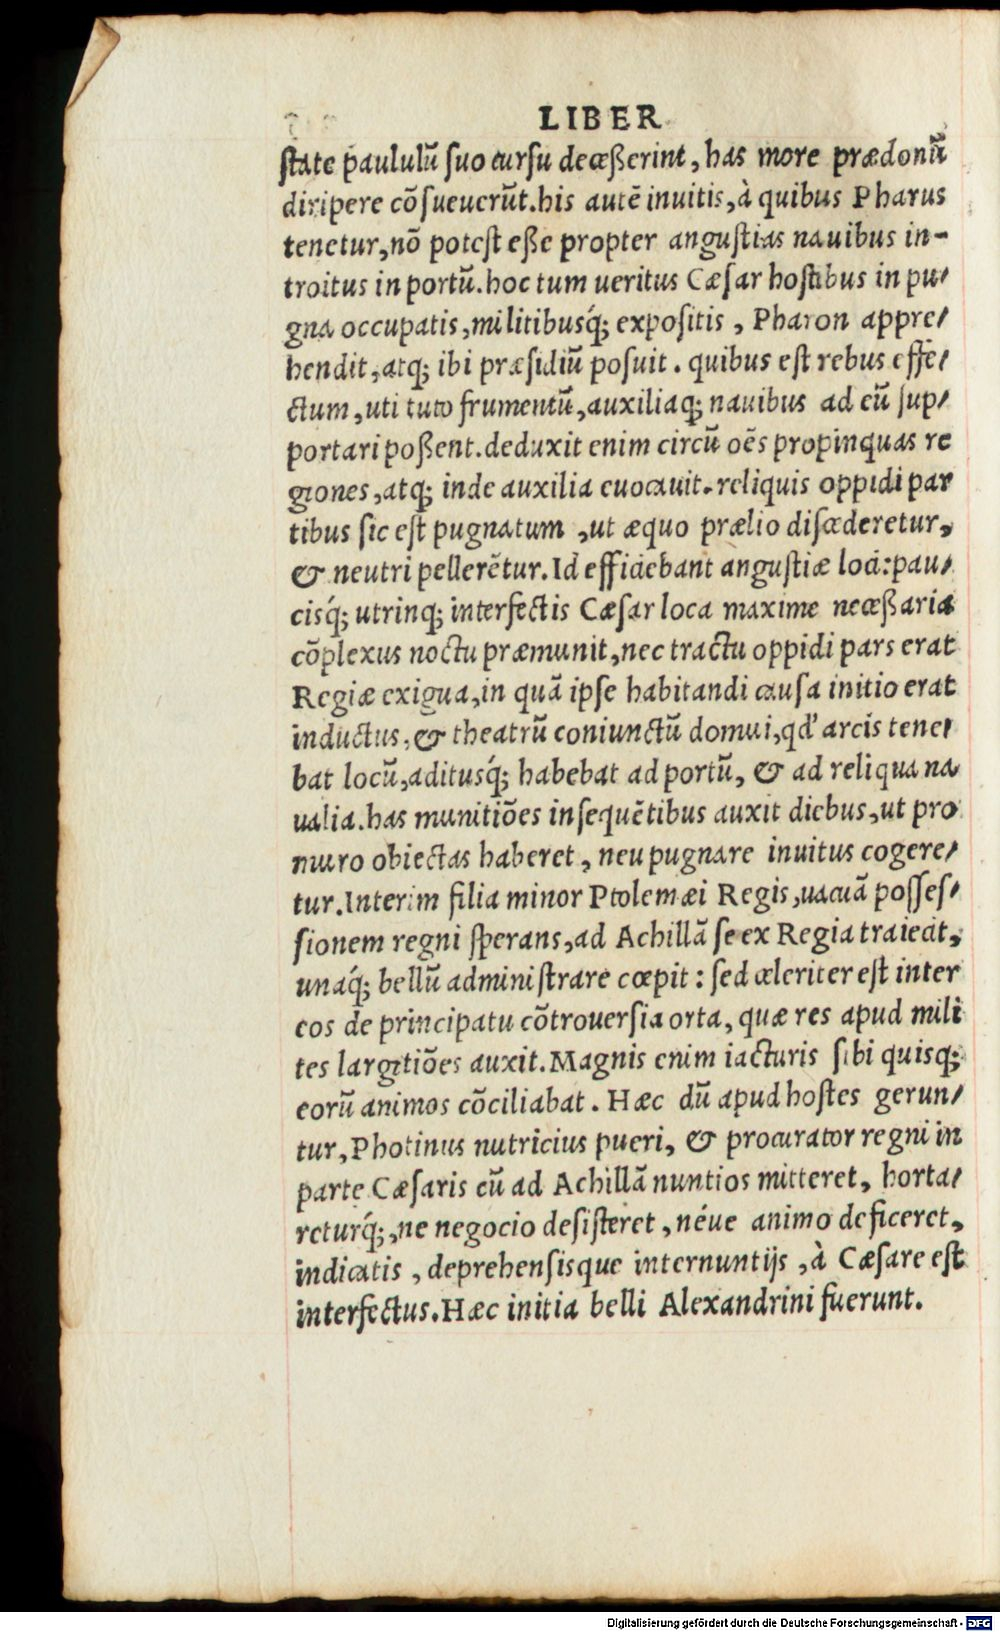 LIBER
state paululū suo cursu decesserint, has more prædonū
diripere cōsueuerūt. his autē inuitis, à quibus Pharus
tenetur, nō potest esse propter angustias nauibus in-
troitus in portū. hoc tum ueritus Cæsar hostibus in pu-
gna occupatis, militibusq́; expositis, Pharon appre-
hendit, atq; ibi præsidiū posuit. quibus est rebus effe-
ctum, uti tuto frumentū, auxiliaq; nauibus ad eū sup-
portari possent. deduxit enim circū oēs propinquas re
giones, atq; inde auxilia euocauit. reliquis oppidi par
tibus sic est pugnatum, ut æquo prælio discederetur,
& neutri pellerētur. Id efficiebant angustiæ loci: pau-
cisq́; utrinq; interfectis Cæsar loca maxime necessaria
cōplexus noctu præmunit, nec tractu oppidi pars erat
Regiæ exigua, in quā ipse habitandi causa initio erat
inductus, & theatrū coniunctū domui, qd' arcis tene-
bat locū, aditusq́; habebat ad portū, & ad reliqua na
ualia. has munitiōes insequētibus auxit diebus, ut pro
muro obiectas haberet, neu pugnare inuitus cogere-
tur. Interim filia minor Ptolemæi Regis, uacuā posses-
sionem regni sperans, ad Achillā se ex Regia traiecit,
unaq́; bellū administrare cœpit: sed celeriter est inter
eos de principatu cōtrouersia orta, quæ res apud mili
tes largitiōes auxit. Magnis enim iacturis sibi quisq;
eorū animos cōciliabat. Hæc dū apud hostes gerun-
tur, Photinus nutricius pueri, & procurator regni in
parte Cæsaris cū ad Achillā nuntios mitteret, horta-
returq́;, ne negocio desisteret, néue animo deficeret,
indicatis, deprehensisque internuntijs, à Cæsare est
interfectus. Hæc initia belli Alexandrini fuerunt.
Digitalisierung gefördert durch die Deutsche Forschungsgemeinschaft - DFG